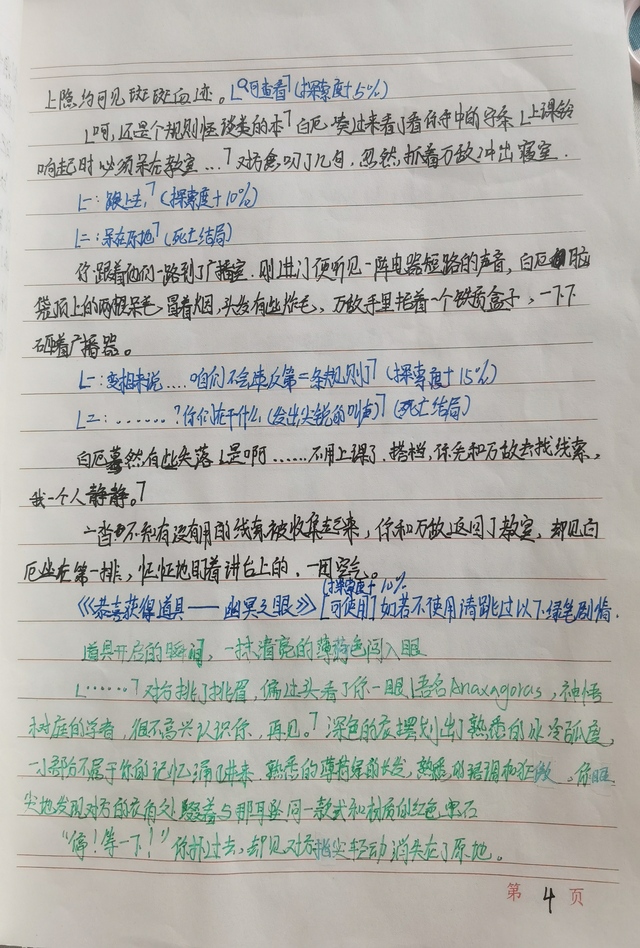 上隐约可见斑斑血迹。「可查看」(探索度+5%)
「呵,还是个规则怪谈类的本」白厄凑过来看了看你手中的字条「上课铃
响起时必须呆在教室…」对方念叨了几句,忽然,抓着万敌冲出寝室.
「一:跟上去」(探索度+10%)
「二:呆在原地」(死亡结局)
你跟着他们一路到了广播室.刚进门便听见一阵电器短路的声音,白厄脑
袋顶上的两根呆毛冒着烟,头发有些炸毛,万敌手里托着一个铁质盒子,一下下
砸着广播器。
「一:变相来说....咱们不会违反第二条规则了」(探索度+15%)
「二:.......?你们在干什么(发出尖锐的叫声)」(死亡结局)
白厄蓦然有些失落「是啊......不用上课了.搭档,你先和万敌去找线索,
我一个人静静。」
一沓不知有没有用的线索被收集起来,你和万敌返回了教室,却见白
厄坐在第一排,怔怔地盯着讲台上的,一团空气。
《《恭喜获得道具——幽冥之眼》》[可使用](探索度+10%)如若不使用请跳过以下绿笔剧情.
道具开启的瞬间,一抹清亮的薄荷色闯入眼
「......」对方挑了挑眉,偏过头看了你一眼「吾名Anaxagoras,神悟
树庭的学者,很不高兴认识你,再见。」深色的衣摆划出了熟悉的冰冷弧度,
一小部分不属于你的记忆涌了进来.熟悉的薄荷绿的长发,熟悉的语调和狂傲,你眼
尖地发现对方的衣角处缀着与那耳坠同一款式和材质的红色宝石
“停!等一下!”你扑过去,却见对方指尖轻动消失在了原地。
第 4 页